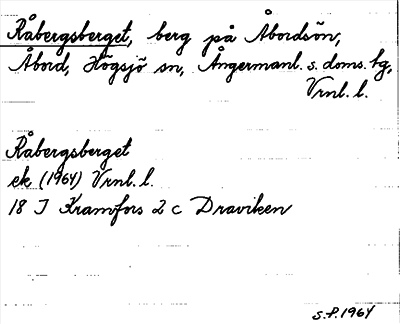 Råbergsberget, berg på Åbordsön,
Åbord, Högsjö sn, Ångermanl. s. doms. hg,
Vrnl. l.
Råbergsberget
ek (1964) Vrnl. l.
18 J Kramfors 2 c Draviken
S.P. 1964